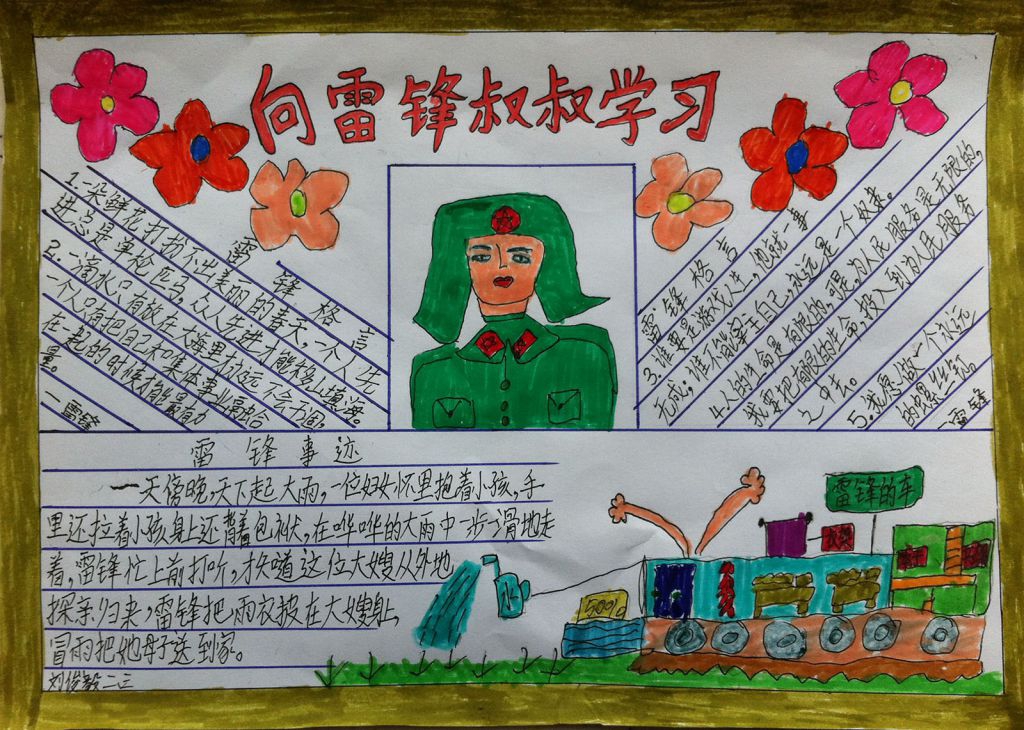 向雷锋叔叔学习
雷锋格言
1.一朵鲜花打扮不出美丽的春天,一个人先
进总是单枪匹马,众人先进才能移山填海。
2.一滴水只有放在大海里才永远不会干涸,
一个人只有把自己和集体事业融合
在一起的时候才能最有力
量。
—雷锋
雷锋格言
3.谁要是游戏人生,他就一事
无成;谁不能主宰自己,永远是一个奴隶。
4.人的生命是有限的,可是,为人民服务是无限的,
我要把有限的生命,投入到为人民服务
之中去。
5.我愿做一个永远
的螺丝钉。
雷锋
雷锋事迹
一天傍晚,天下起大雨,一位妇女怀里抱着小孩,手
里还拉着小孩身上还背着包袱,在哗哗的大雨中一步一滑地走
着,雷锋忙上前打听,才知道这位大嫂从外地
探亲归来,雷锋把雨衣披在大嫂身上,
冒雨把她母子送到家。
刘俊毅二三
雷锋的车